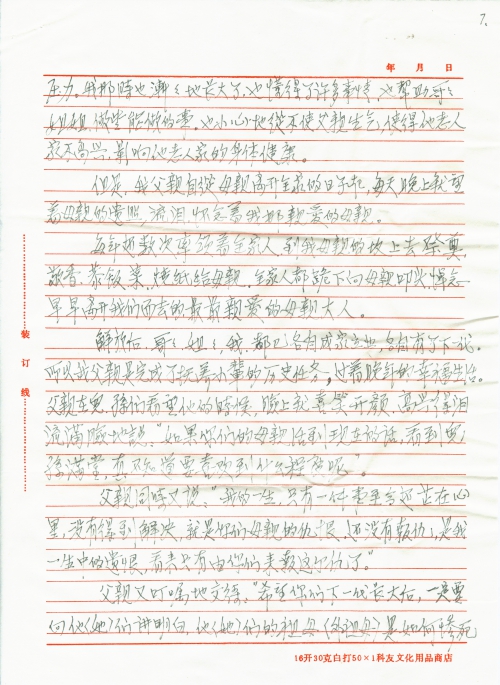 7.
年 月 日
压力。我那时也渐々地长大了,也懂得了许多事情,也帮助哥々
姐姐,做些能做的事。也小心地从不使父亲生气,使得他老人
家不高兴,影响他老人家的身体健康。
但是,我父亲自从母亲离开全家的日子起,每天晚上就望
着母亲的遗照,流泪怀念着我们亲爱的母亲。
每年也数次率领着全家人,到我母亲的坟上去祭奠,
敬香、菜饭菜、烧纸给母亲,全家人都跪下向母亲叩头,悼念
早早离开我们而去的最最亲爱的母亲大人。
解放后,哥々、姐々、我,都已各自成家立业,各自有了下一代。
所以我父亲是完成了扶养小辈的历史任务,过着晚年的幸福生活。
父亲在儿、孙们看望他的时候,脸上就喜笑开颜,高兴得泪
流满脸地说:"如果你们的母亲活到现在的话,看到儿
孙满堂,真不知道要喜欢到什么程度呢"。
父亲同时又说:"我的一生,只有一件事至今还苦在心
里,没有得到解决,就是你们母亲的仇恨,还没有报仇,是我
一生中的遗恨,看来只有由你们来报这个仇了"。
父亲又叮嘱地交待:"希望你们的下一代长大后,一定要
向他(她)们讲明白,他(她)们的祖母(外祖母)是如何惨死
装
订
线
16开30克白打50×1科友文化用品商店